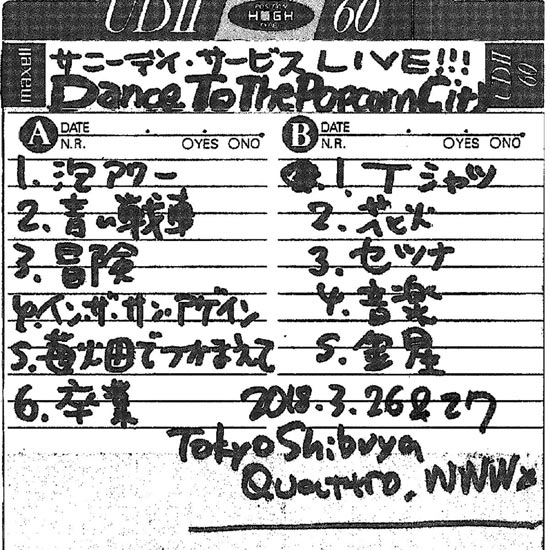 UDII HIGH 60
maxell
サニーデイ・サービス LIVE!!!
Dance To The Popcorn City
UDII 60
A DATE . .
N.R. OYES ONO
1. 泡アワー
2. 青い戦車
3. 冒険
4. イン・ザ・サン・アゲイン
5. 苺畑でつかまえて
6. 卒業
B DATE . .
N.R. OYES ONO
1. Tシャツ
2. 花火
3. セツナ
4. 音楽
5. 金星
2018.3.26&27
Tokyo Shibuya
Quattro, WWWX